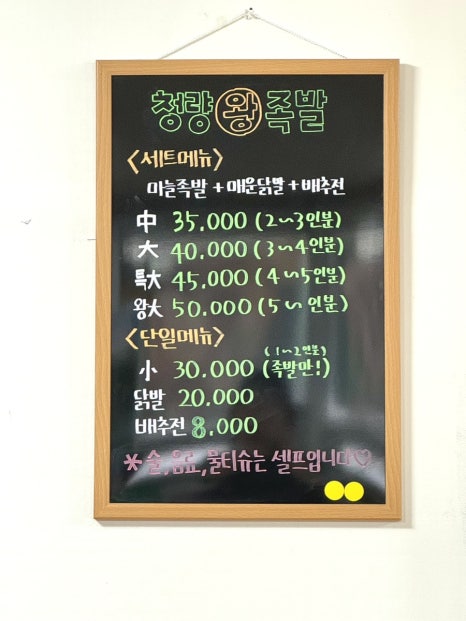 청량왕족발
<세트메뉴>
마늘족발 + 매운닭발 + 배추전
中 35.000 (2~3인분)
大 40.000 (3~4인분)
특大 45.000 (4~5인분)
왕大 50.000 (5~ 인분)
<단일메뉴>
(1~2인분)
小 30.000 (족발만!)
닭발 20.000
배추전 8.000
*술,음료,물티슈는 셀프입니다♡